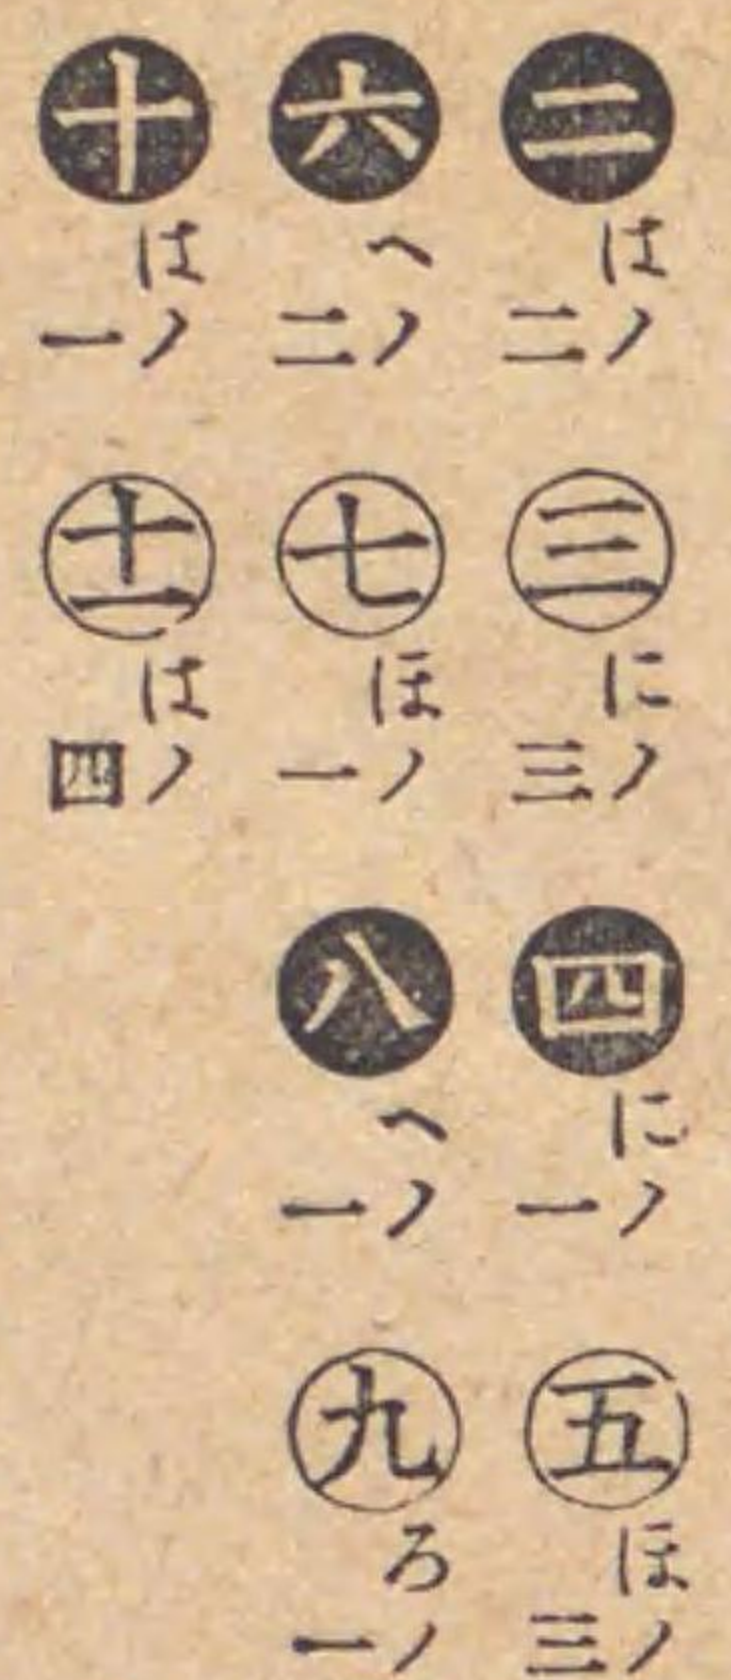 二 はノ二 三 にノ三 四 にノ一 五 ほノ三
六 へノ二 七 ほノ一 八 へノ一 九 ろノ一
十 はノ一 十一 はノ四